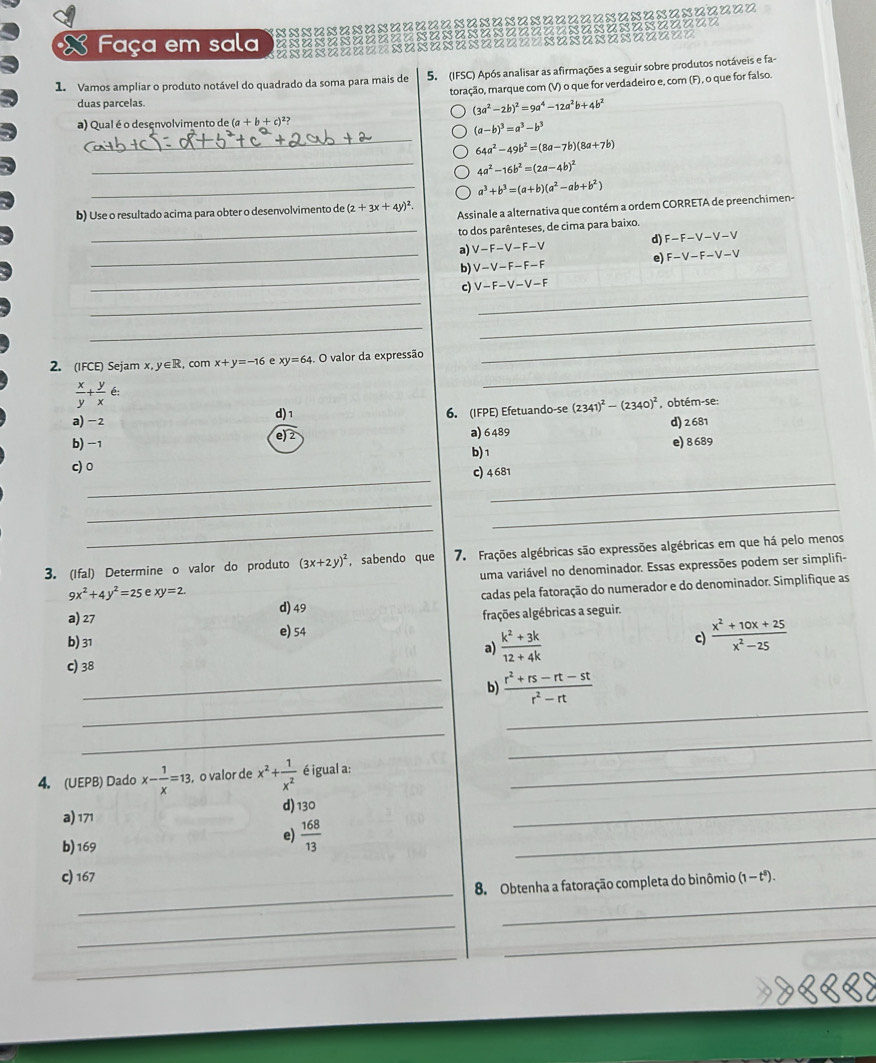 Faça em sala
1. Vamos ampliar o produto notável do quadrado da soma para mais de
duas parcelas.
a) Qual é o desenvolvimento de (a + b + c)²?
(a+b+c)² = a²+b²+c²+2ab+2
b) Use o resultado acima para obter o desenvolvimento de (2 + 3x + 4y)².
2. (IFCE) Sejam x, y∈ℝ, com x+y=−16 e xy=64. O valor da expressão
x/y + y/x é:
a) −2
b) −1
c) 0
d) 1
e) 2
3. (Ifal) Determine o valor do produto (3x+2y)², sabendo que
9x²+4y²=25 e xy=2.
a) 27
b) 31
c) 38
d) 49
e) 54
4. (UEPB) Dado x−1/x=13, o valor de x²+1/x² é igual a:
a) 171
b) 169
c) 167
d) 130
e) 168/13
5. (IFSC) Após analisar as afirmações a seguir sobre produtos notáveis e fa-
toração, marque com (V) o que for verdadeiro e, com (F), o que for falso.
(3a²−2b)²=9a⁴−12a²b+4b²
(a−b)³=a³−b³
64a²−49b²=(8a−7b)(8a+7b)
4a²−16b²=(2a−4b)²
a³+b³=(a+b)(a²−ab+b²)
Assinale a alternativa que contém a ordem CORRETA de preenchimen-
to dos parênteses, de cima para baixo.
a) V−F−V−F−V
b) V−V−F−F−F
c) V−F−V−V−F
d) F−F−V−V−V
e) F−V−F−V−V
6. (IFPE) Efetuando-se (2341)²−(2340)², obtém-se:
a) 6 489
b) 1
c) 4 681
d) 2 681
e) 8 689
7. Frações algébricas são expressões algébricas em que há pelo menos
uma variável no denominador. Essas expressões podem ser simplifi-
cadas pela fatoração do numerador e do denominador. Simplifique as
frações algébricas a seguir.
a) (k²+3k)/(12+4k)
b) (r²+rs−rt−st)/(r²−rt)
c) (x²+10x+25)/(x²−25)
8. Obtenha a fatoração completa do binômio (1−t⁸).